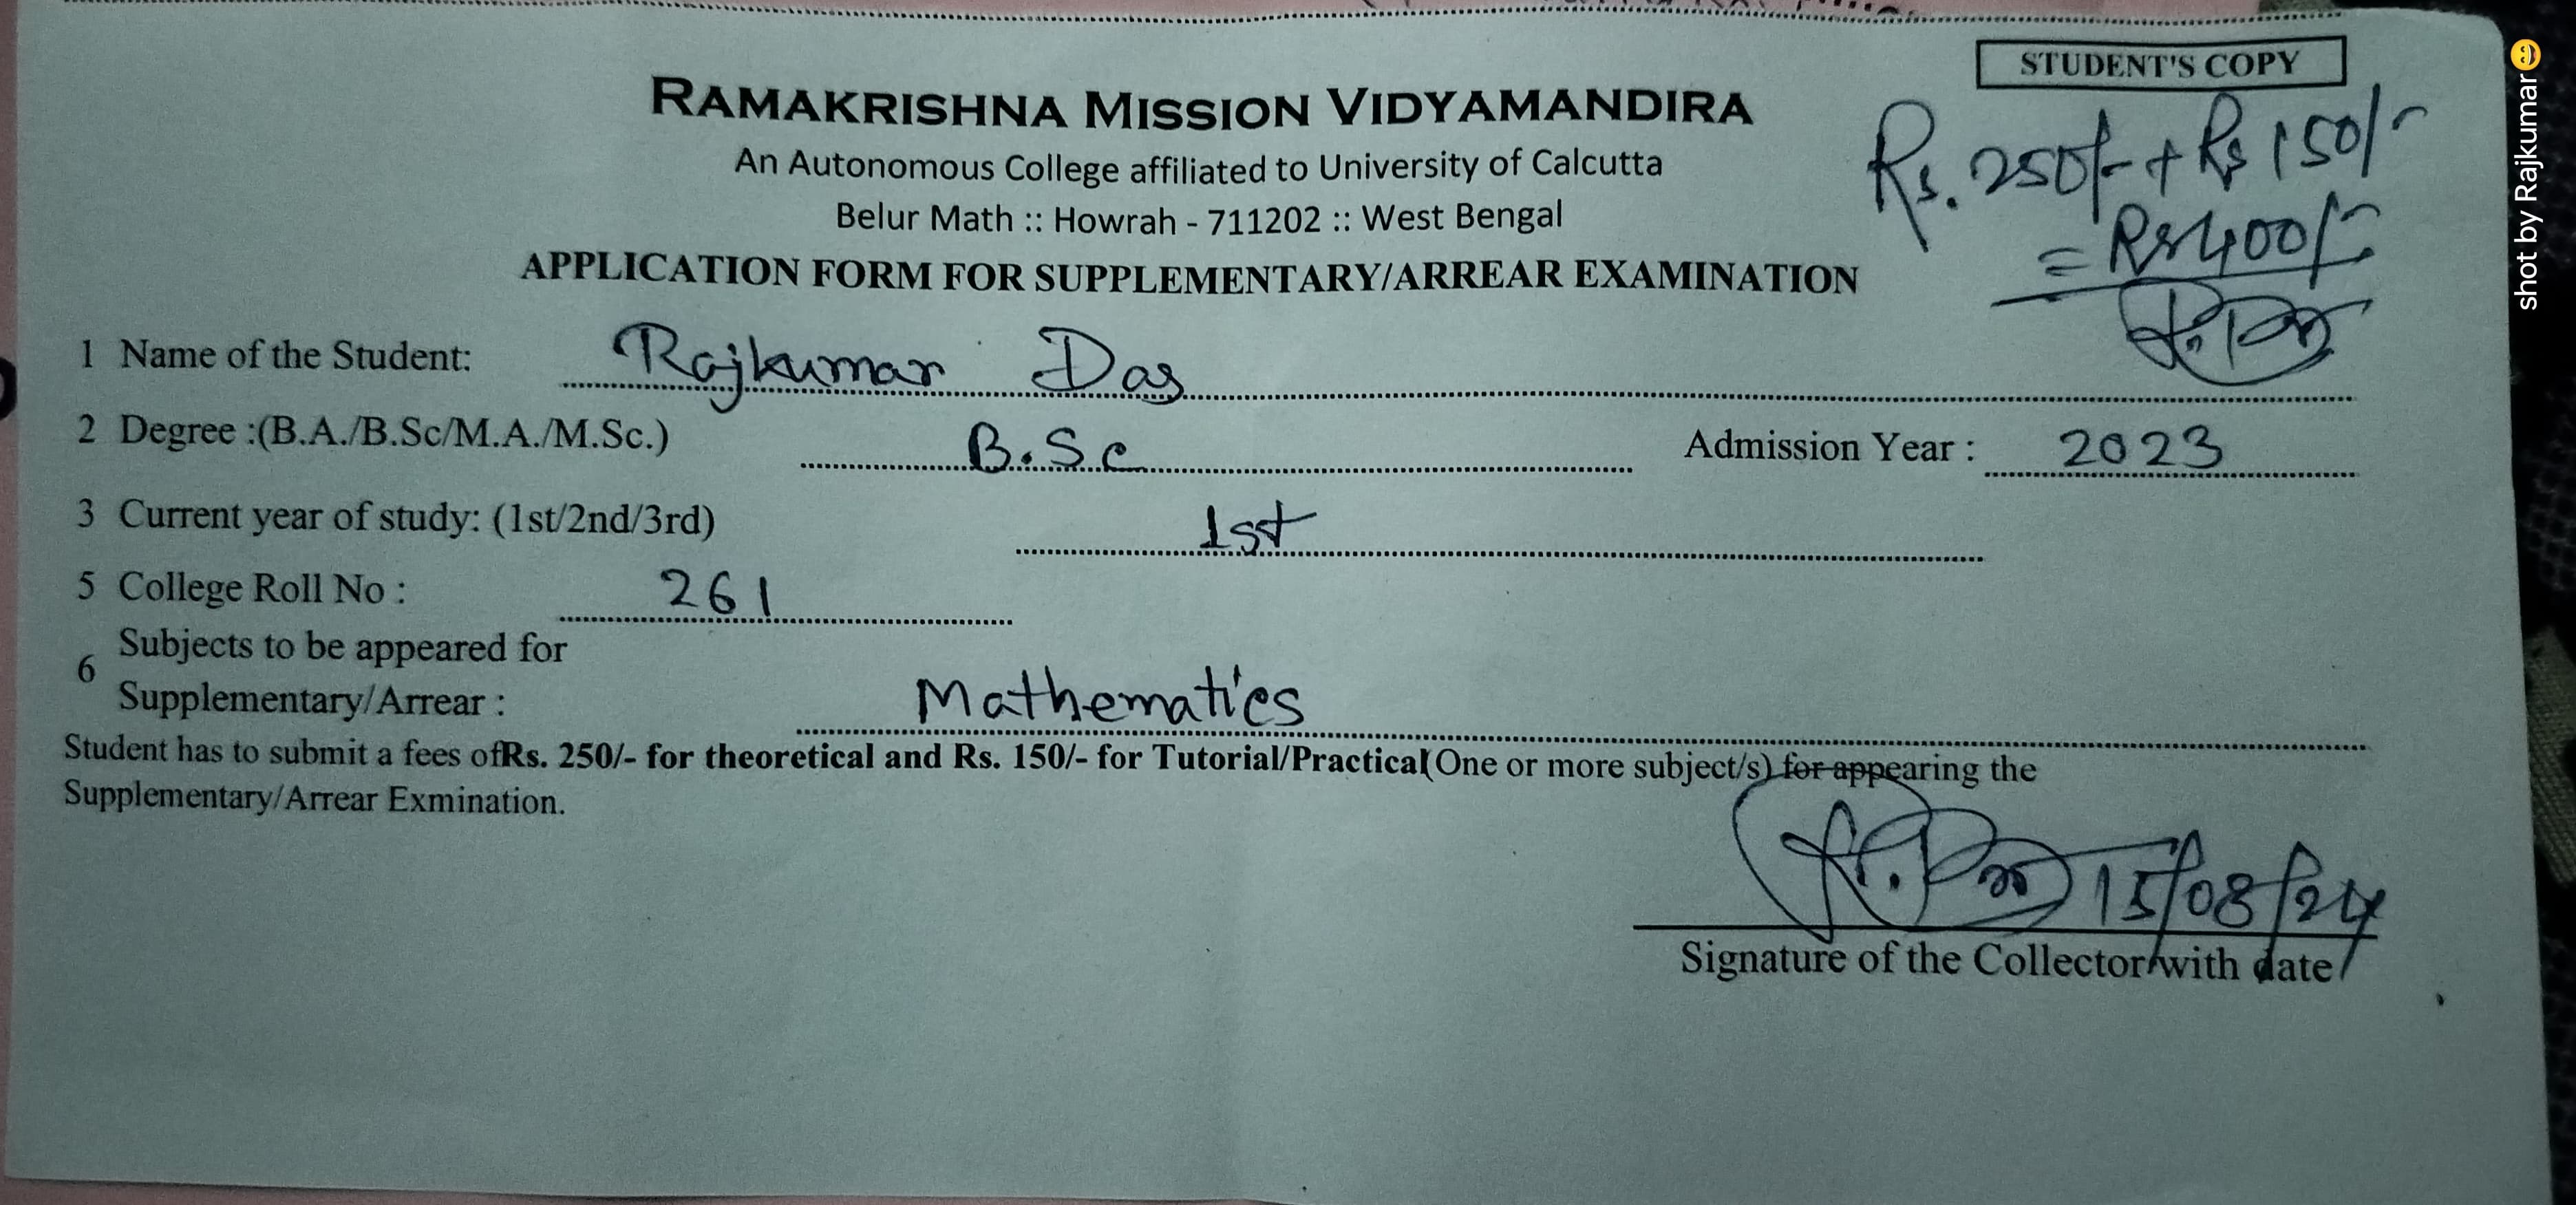 STUDENT'S COPY
RAMAKRISHNA MISSION VIDYAMANDIRA
An Autonomous College affiliated to University of Calcutta
Belur Math :: Howrah - 711202 :: West Bengal
Rs. 250/- + Rs 150/-
= Rs 400/-
APPLICATION FORM FOR SUPPLEMENTARY/ARREAR EXAMINATION
1 Name of the Student: Rajkumar Das
2 Degree :(B.A./B.Sc/M.A./M.Sc.) B.Sc Admission Year : 2023
3 Current year of study: (1st/2nd/3rd) 1st
5 College Roll No : 261
6 Subjects to be appeared for
Supplementary/Arrear : Mathematics
Student has to submit a fees ofRs. 250/- for theoretical and Rs. 150/- for Tutorial/Practical(One or more subject/s) for appearing the
Supplementary/Arrear Exmination.
15/08/24
Signature of the Collector with date
shot by Rajkumar😊